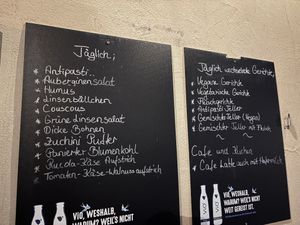 Täglich;
* Antipasti..
* Auberginensalat
* Humus
* Linsenbällchen
* Couscous
* Grüne Linsensalat
* Dicke Bohnen
* Zuchini Puffer
* Panierter Blumenkohl
* Rucola-Käse Aufstrich
* Tomaten-Käse-Walnussaufstrich
VIO, WESHALB,
WARUM? WEIL'S NICHT
Täglich wechselnde Gerichte
* Vegane Gerichte
* Vegetarische Gerichte
* Fleischgerichte
* Antipasti Teller
* Gemischter Teller (Vegan)
* Gemischter Teller mit Fleisch
Cafe und Kuchen
* Cafe Latte auch mit Hafermilch
VIO, WESHALB,
WARUM? WEIL'S NICHT
WEIT GEREIST IST.